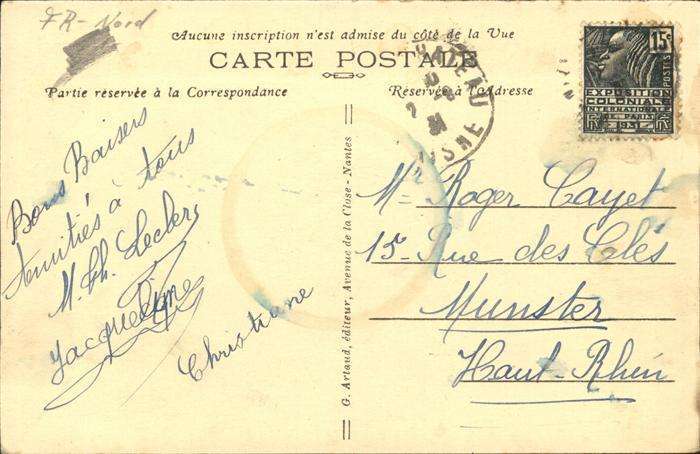 FR-Nord
Aucune inscription n'est admise du côté de la Vue
CARTE POSTALE
Partie réservée à la Correspondance
Réservée à l'Adresse
15c
POSTES
EXPOSITION
COLONIALE
INTERNATIONALE
PARIS
1931
AISNE
Bons Baisers
Amitiés à tous
M. Ch. Leclerc
Jacqueline
Christiane
G. Artaud, éditeur, Avenue de la Close - Nantes
Mr Roger Cayet
15 Rue des Clés
Munster
Haut-Rhin